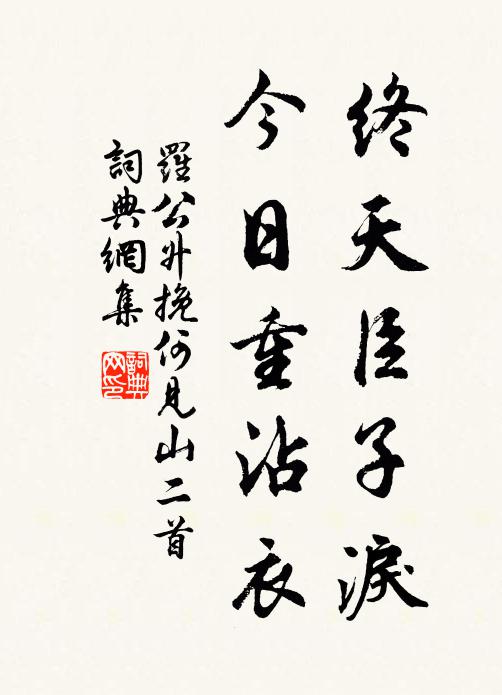 終天臣子淚
今日重沾衣
羅公升挽何見山二首
詞典網集
詞典网印